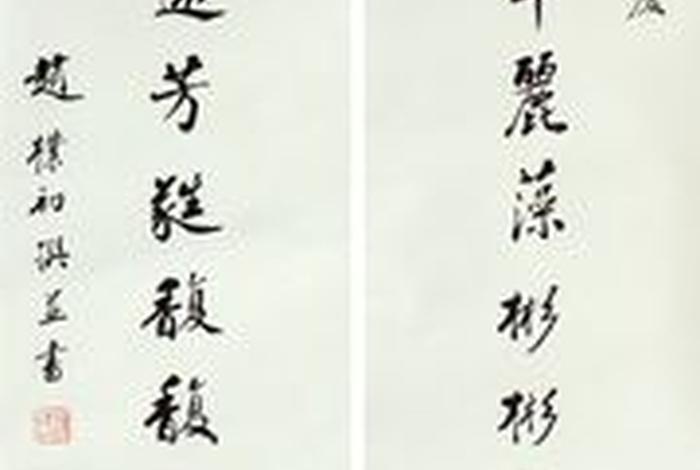 麗藻彬彬
芳蕤馥馥
趙樸初撰並書